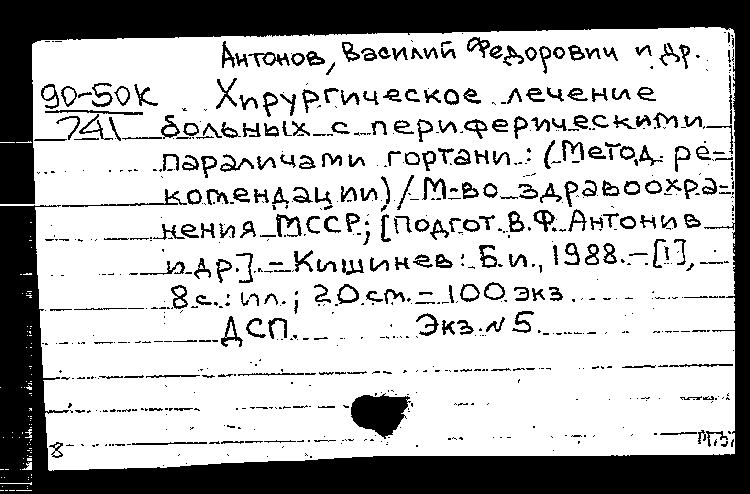 Антонов, Василий Федорович и др.
90-50К Хирургическое лечение
741 больных с периферическими
параличами гортани : (Метод. ре-
комендации) / М-во здравоохра-
нения МССР; [Подгот. В.Ф. Антонив
и др.]. - Кишинев : Б.и., 1988. - [1],
8 с. : ил.; 20 cm. - 100 экз.
ДСП. Экз. N 5.
8